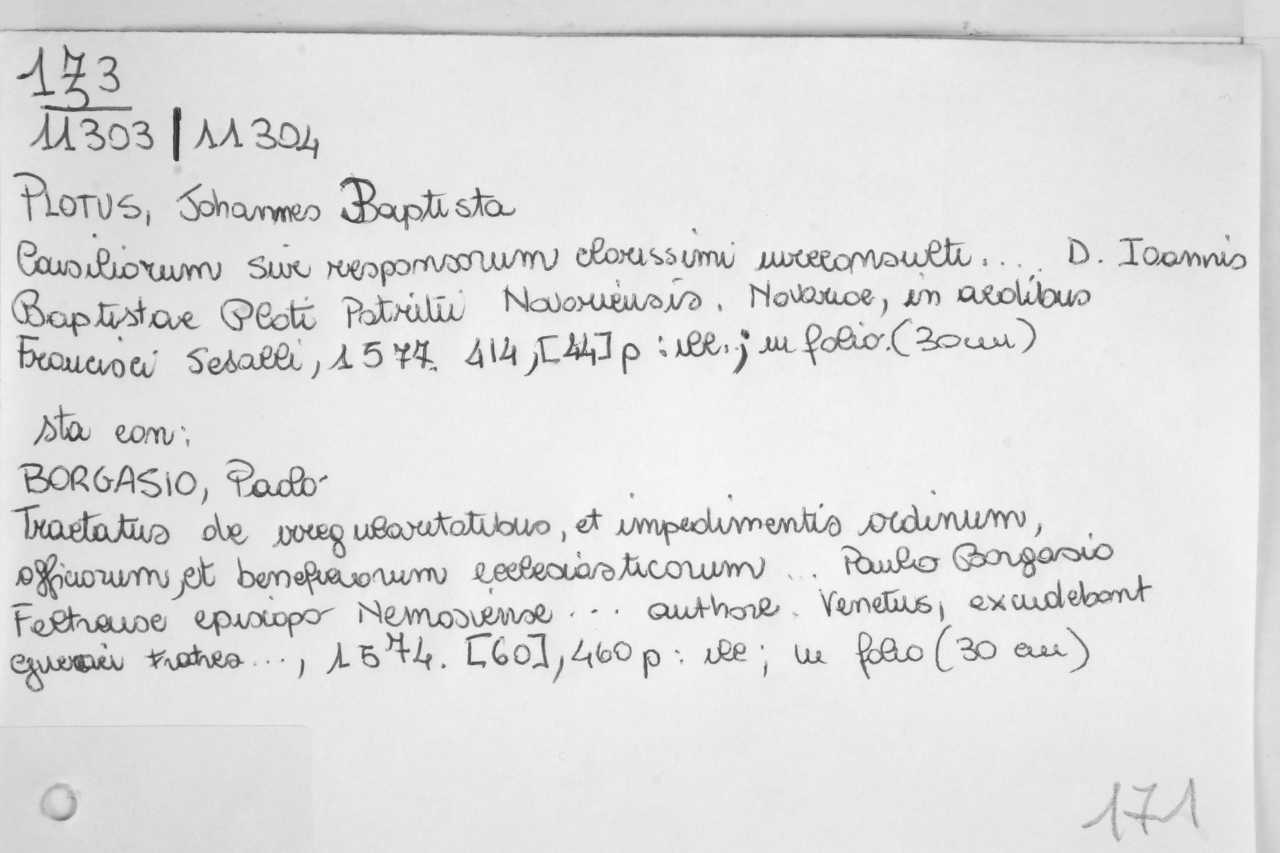 173
11303 | 11304
PLOTUS, Johannes Baptista
Consiliorum sive responsorum clarissimi iureconsulti.... D. Ioannis
Baptistae Ploti Patritii Novariensis. Novariae, in aedibus
Francisci Sesalli, 1577. 414, [44] p : ill. ; in folio. (30 cm)
sta con:
BORGASIO, Paolo
Tractatus de irregularitatibus, et impedimentis ordinum,
officiorum, et beneficiorum ecclesiasticorum ... Paulo Borgasio
Feltrense episcopo Nemosiense ... authore. Venetiis, excudebant
Guerrei fratres..., 1574. [60], 460 p : ill ; in folio (30 cm)
171